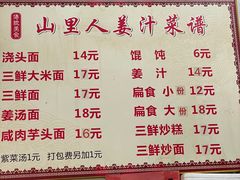 传统美食
山里人姜汁菜谱
浇头面 14元
三鲜大米面 17元
三鲜面 17元
姜汤面 18元
咸肉芋头面 16元
馄饨 6元
姜汁 14元
扁食 小份 12元
扁食 大份 18元
三鲜炒糕 17元
三鲜炒面 17元
紫菜汤1元 打包费另加1元